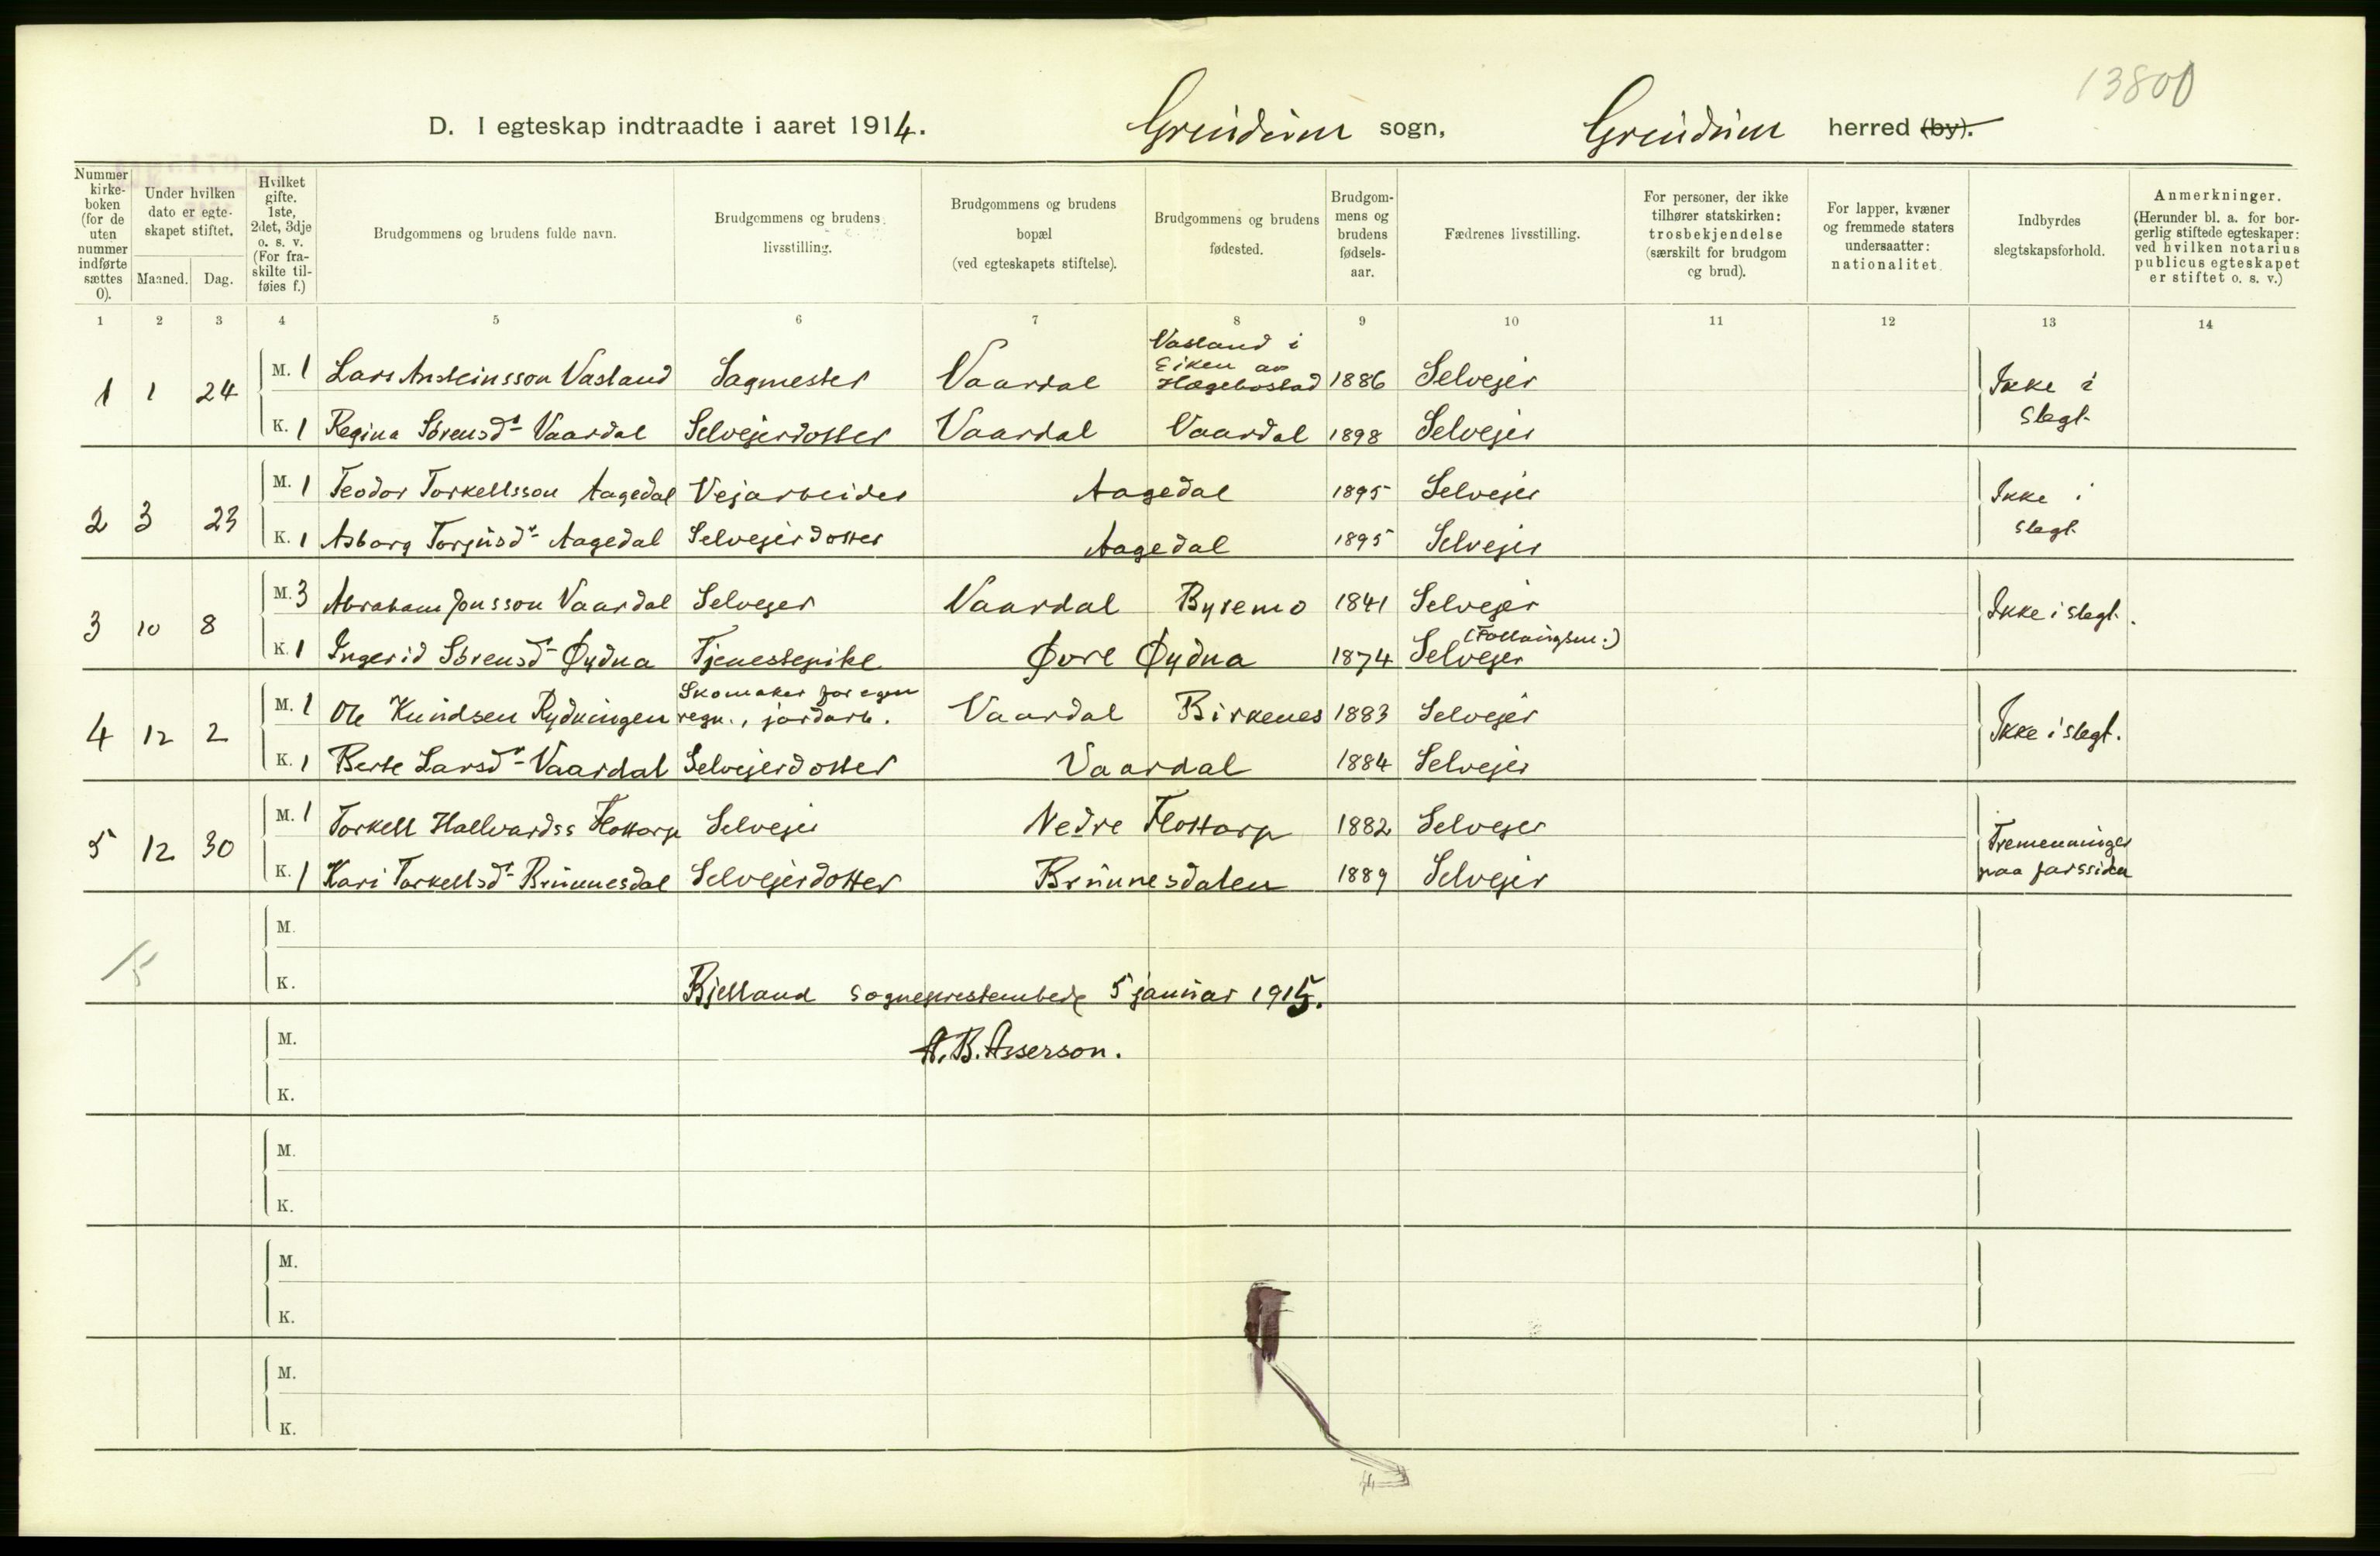 13800
D. I egteskap indtraadte i aaret 1914. Grindum sogn, Grindum herred (by).
Nummer kirkeboken (for de uten nummer indførte sættes 0).
Under hvilken dato er egteskapet stiftet.
Maaned. Dag.
Hvilket gifte. 1ste, 2det, 3dje o. s. v. (For fraskilte tilføies f.)
Brudgommens og brudens fulde navn.
Brudgommens og brudens livsstilling.
Brudgommens og brudens bopæl (ved egteskapets stiftelse).
Brudgommens og brudens fødested.
Brudgommens og brudens fødselsaar.
Fædrenes livsstilling.
For personer, der ikke tilhører statskirken: trosbekjendelse (særskilt for brudgom og brud).
For lapper, kvæner og fremmede staters undersaatter: nationalitet.
Indbyrdes slegtskapsforhold.
Anmerkninger. (Herunder bl. a. for borgerlig stiftede egteskaper: ved hvilken notarius publicus egteskapet er stiftet o. s. v.)
1 2 3 4 5 6 7 8 9 10 11 12 13 14
1 1 24 M. 1 Lars Ansteinsson Vasland Sagmester Vaardal Vasland i Eiken av Hægebostad 1886 Selvejer Ikke i slegt.
K. 1 Regina Sørensd.r Vaardal Selvejerdotter Vaardal Vaardal 1898 Selvejer
2 3 23 M. 1 Teodor Torkellsson Aagedal Vejarbeider Aagedal 1895 Selvejer Ikke i slegt.
K. 1 Asborg Torjusd.r Aagedal Selvejerdotter Aagedal 1895 Selvejer
3 10 8 M. 3 Abraham Jonsson Vaardal Selvejer Vaardal Byremo 1841 Selvejer Ikke i slegt.
K. 1 Ingerid Sørensd.r Øydna Tjenestepike Øvre Øydna 1874 Selvejer
4 12 2 M. 1 Ole Knudsen Rydningen Skomaker for egen regn., jordarb. Vaardal Birkenes 1883 Selvejer Ikke i slegt.
K. 1 Berte Larsd.r Vaardal Selvejerdotter Vaardal 1884 Selvejer
5 12 30 M. 1 Torkell Hallvardss Flottorp Selvejer Nedre Flottorp 1882 Selvejer Tremenninger paa farssiden
K. 1 Kari Torkellsd.r Brunnesdal Selvejerdotter Brunnesdalen 1889 Selvejer
M.
5
K. Bjelland sogneprestembede 5 januar 1915.
M. A. B. Asserson.
K.
M.
K.
M.
K.
M.
K.